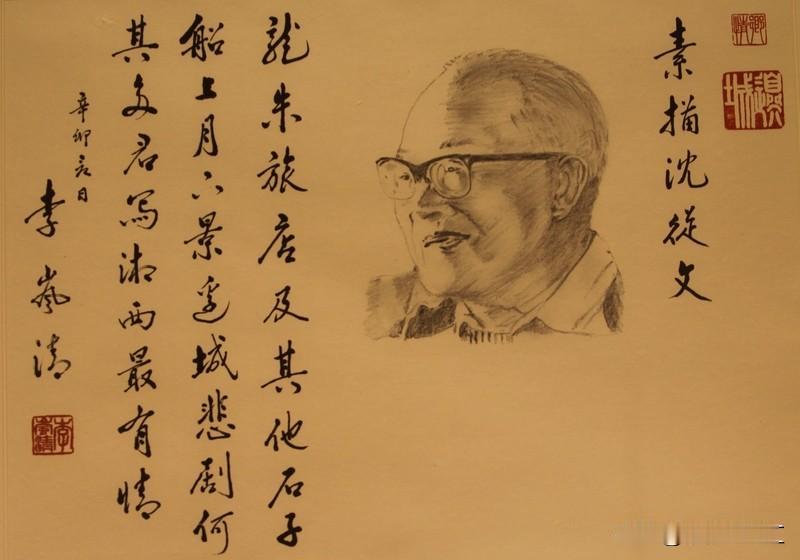 素描沈從文
龍朱旅店及其他石子
船上月下景邊城悲劇何
其多君寫湘西最有情
辛卯日
李嵐清